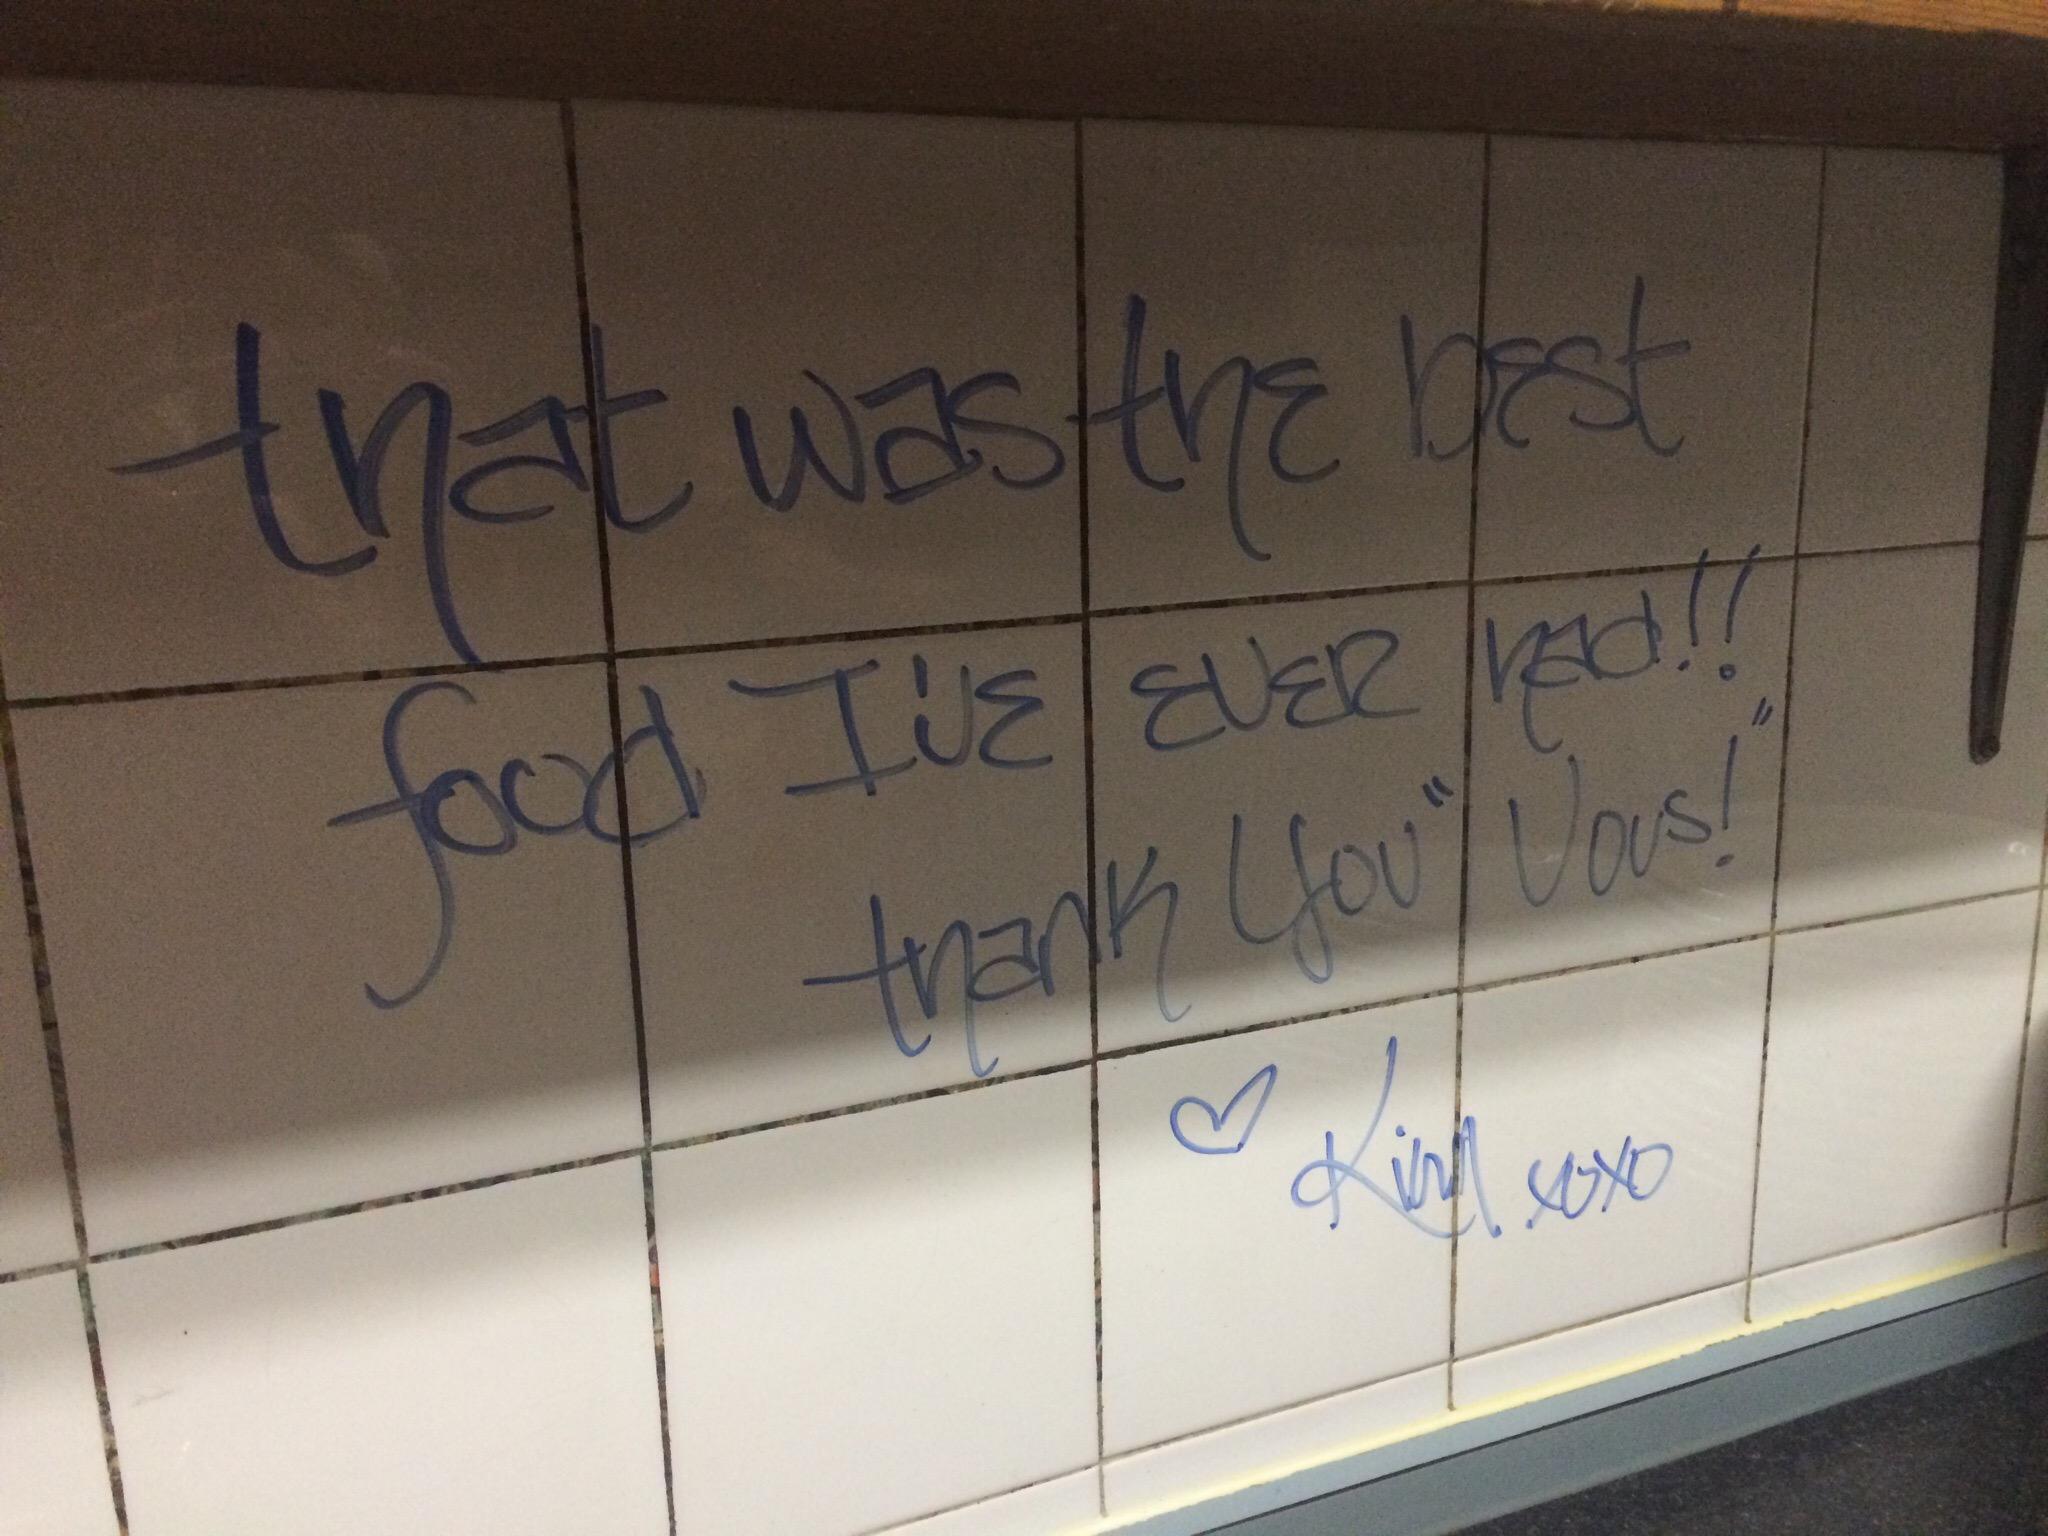 that was the best
food I've ever had!!
thank you "Vous!"
♡ Kim. xoxo